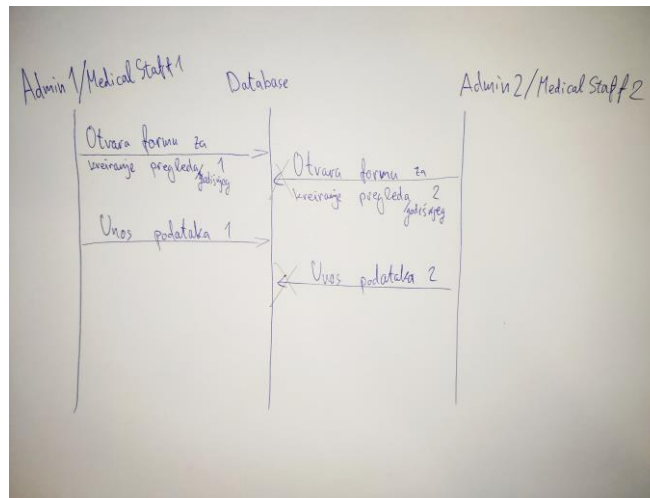 Admin 1/Medical Staff 1
Database
Admin 2/Medical Staff 2
Otvara formu za
kreiranje pregleda 1
/godišnjeg
Otvara formu za
kreiranje pregleda 2
/godišnjeg
Unos podataka 1
Unos podataka 2